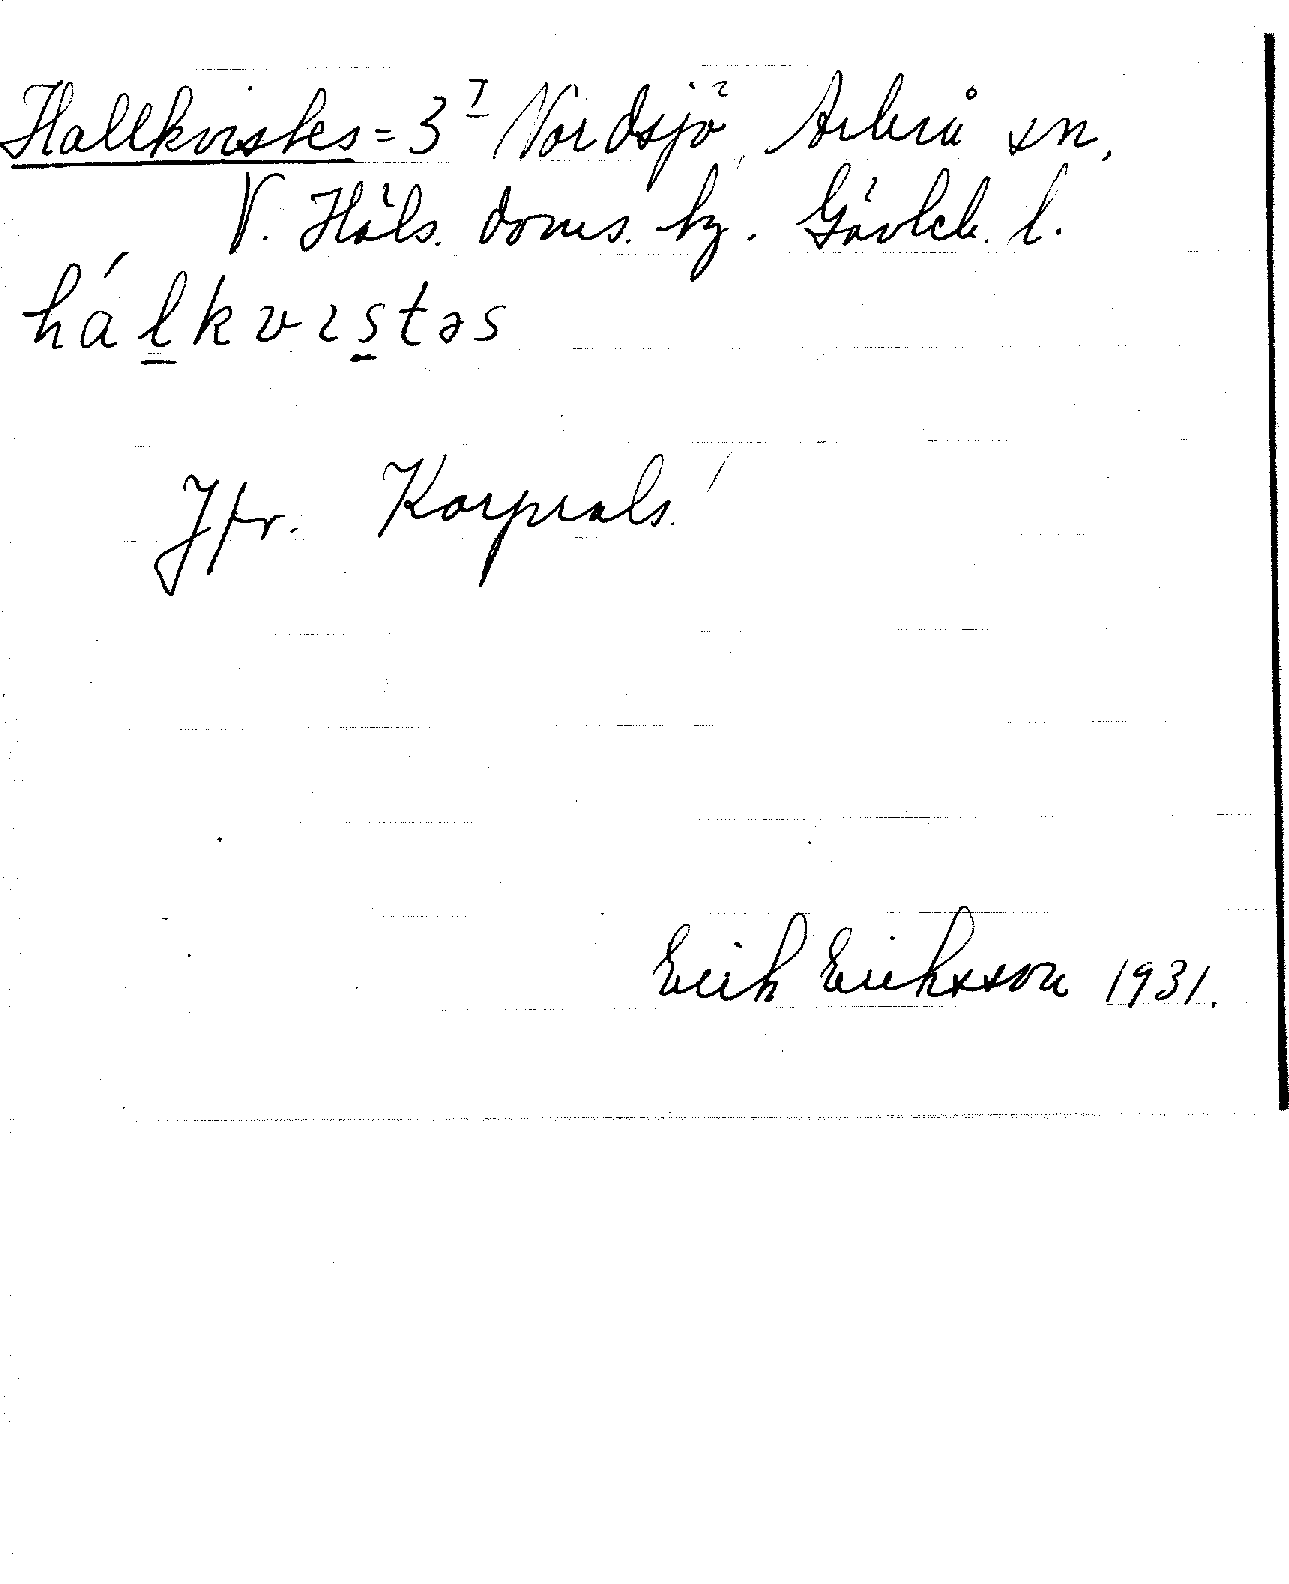 Hallkvistes = 3 I Nordsjö, Arbrå sn,
V. Häls. doms. hg. Gävleb. l.
hálkvıstəs
Jfr. Korprals
Erik Eriksson 1931.